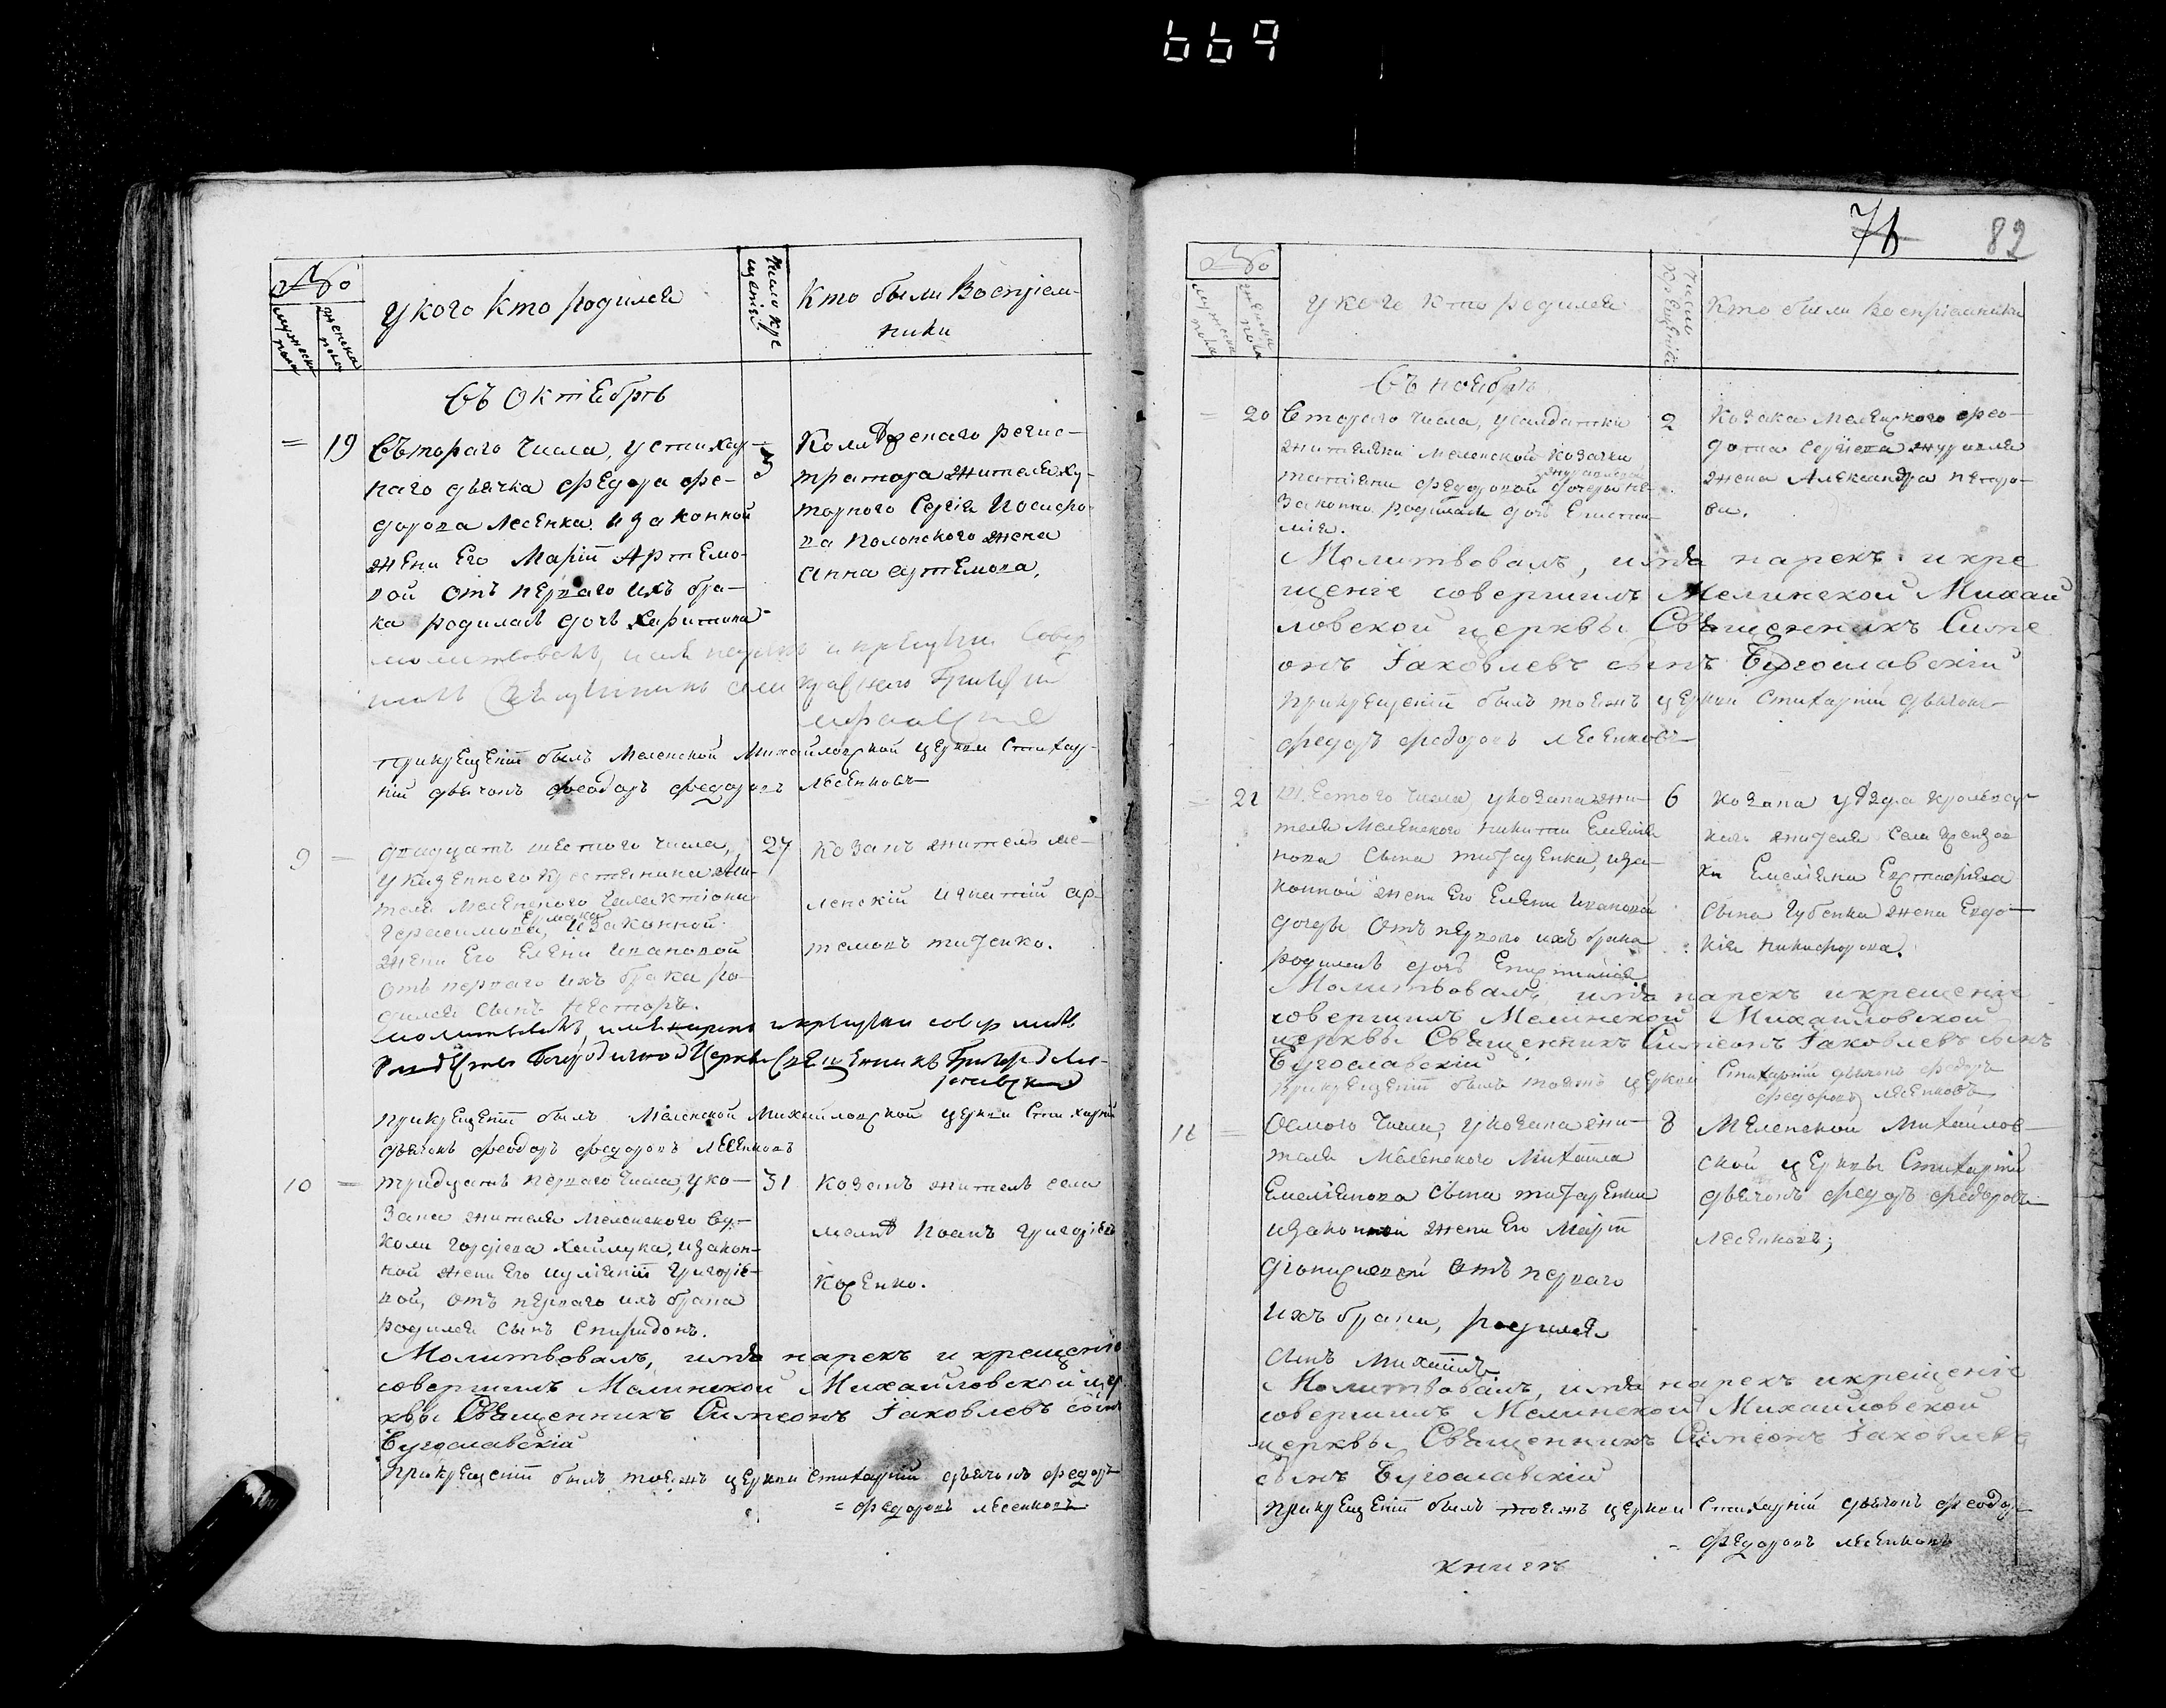 669
№
мужеска пола
женска пола
У кого кто родился
Число крещений
Кто были Восприем-
ники
Въ Октебрѣ
= 19
Въторого числа, у стихар-
наго дьячка Федора Фе-
дорова Лесенка и законной
жени Его Маріи Артемо-
вой отъ перваго ихъ бра-
ка родилась дочь Харитина
3
регис-
тратора жителя ху-
торного Сергія Иосифо-
ва Полонского жена
Анна Артемова.
молитвовалъ, имя нарекъ и крещеніе совер
шилъ Священникъ
при крещеніи былъ Меленской Михайловской церкви Стихар-
ній дьячокъ Феодоръ Федоровъ Лесенковъ
9 =
двадцать шестого числа,
у казенного крестянина жи-
теля Меленского
Герасимова Ермака, и законной
жени Его Елени Ивановой
отъ перваго ихъ брака ро-
дился сынъ Несторъ.
27
козакъ житель ме-
ленскій Игнатій Ар-
темовъ титенко.
молитвовалъ, имя нарекъ и крещеніи совершилъ
Рождества Богородичной Церкви Священникъ Григорій
при крещеніи былъ Меленской Михайловской церкви Стихарній
дьячокъ Феодоръ Федоровъ Лесенковъ
10 =
тридцать перваго числа, у ко-
зака жителя Меленского
Гордіева и закон-
ной жени Его Иуліяніи Григоріе-
вой, отъ перваго ихъ брака
родился сынъ Спиридонъ.
31
козакъ житель села
Иоанъ Григоріевъ
Косенко.
Молитвовалъ, имя нарекъ и крещеніе
совершилъ Мелинской Михайловской цер
квы Священникъ Симеонъ Іаковлевъ сынъ
Бугославскій
при крещеніи былъ тоеижъ церкви Стихарній дьячокъ Федоръ
= Федоровъ Лесенковъ
76
82
№
мужеска пола
женска пола
У кого кто родился
Число крещенія
Кто были Воспріемники
Въ ноебрѣ
= 20
Второго числа, у салдатки
жителки меленской козачки
татіяни Федоровой дочеры не-
законно родилась дочь Еписти-
мія.
2
Козака Меленского Фео-
дота Сергіева журавля
жена Александра Петро-
ви.
Молитвовалъ, имя нарекъ и кре
щеніе совершилъ Мелинской Михай
ловской церквы Священникъ Симе
онъ Іаковлевъ сынъ Бугославскій
при крещеніи былъ тоеижъ церкви Стихарній дьячокъ
Федоръ Федоровъ Лесенковъ
= 21
Шестого числа, у козака жи-
теля Меленского Никити Емеліа
нова сына титаренка, и за-
конной жени Его Елени Ивановой
дочеры отъ перваго ихъ брака
родилась дочь Епистимія
6
козака уѣзда кролевец-
кого жителя села
Емеліяна Евстафіева
сына Губенка жена Евдо-
кія Никифорова.
Молитвовалъ, имя нарекъ и крещеніе
совершилъ Мелинской Михайловской
церквы Священникъ Симеонъ Іаковлевъ сынъ
Бугославскій
при крещеніи былъ тоеижъ церкви Стихарній дьячокъ Федоръ
Федоровъ Лесенковъ
11 =
Осмого числа, у козака жи-
теля Меленского Михаила
Емеліянова сына титаренка
и законной жени Его Маріи
Діонисіевой отъ перваго
ихъ брака, родился
сынъ Михаилъ
8
Меленской Михайлов-
ской церквы Стихарній
дьячокъ Федоръ Федоровъ
Лесенковъ;
Молитвовалъ, имя нарекъ и крещеніе
совершилъ Мелинской Михайловской
церквы Священникъ Симеонъ Іаковлевъ
сынъ Бугославскій
при крещеніи былъ тоеижъ церкви Стихарній дьячокъ Феодор
= Федоровъ Лесенковъ
книгъ